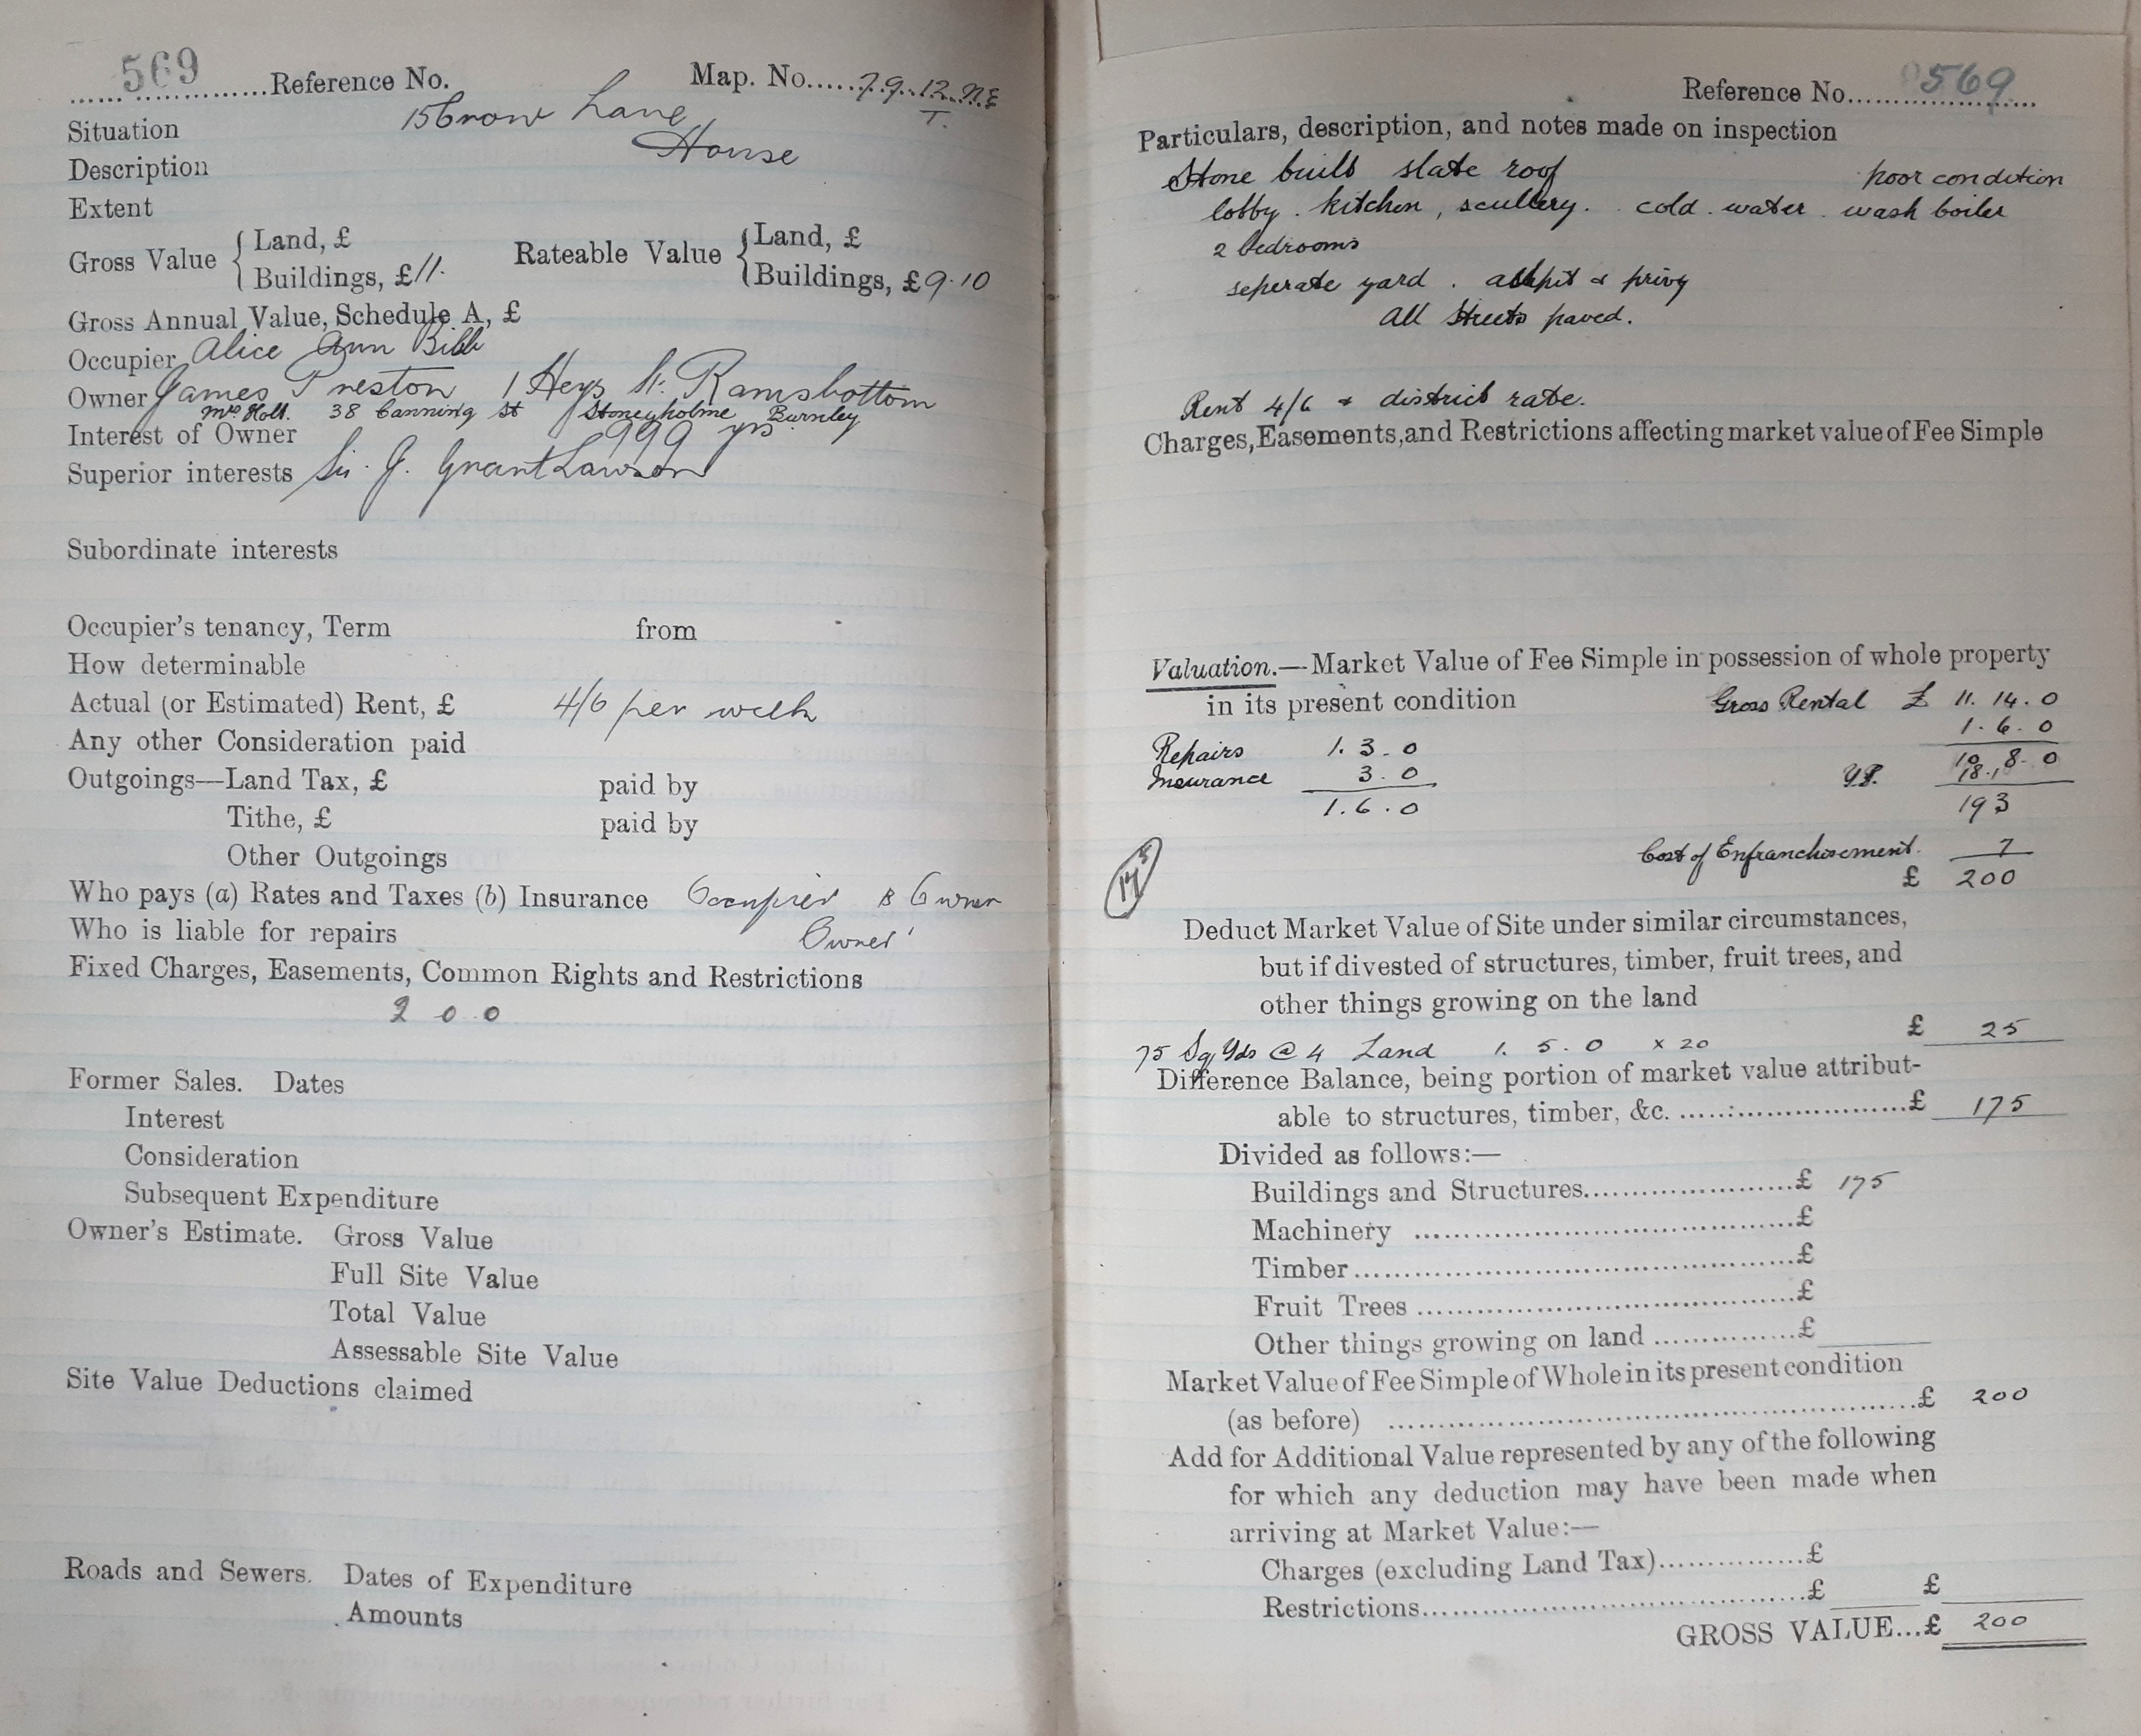 569 Reference No. Map. No. 79.12.N.E
T.
Situation 15 Crow Lane
Description House
Extent
Gross Value { Land, £
Buildings, £11. Rateable Value { Land, £
Buildings, £9.10
Gross Annual Value, Schedule A, £
Occupier Alice Ann Bibb
Owner James Preston 1 Heys St. Ramsbottom
Mrs Holt. 38 Canning St Stoneyholme Burnley
Interest of Owner 999 yrs
Superior interests Sir J. Grant Lawson
Subordinate interests
Occupier's tenancy, Term from
How determinable
Actual (or Estimated) Rent, £ 4/6 per week
Any other Consideration paid
Outgoings—Land Tax, £ paid by
Tithe, £ paid by
Other Outgoings
Who pays (a) Rates and Taxes (b) Insurance Occupier B Owner
Who is liable for repairs Owner
Fixed Charges, Easements, Common Rights and Restrictions
2 0 0
Former Sales. Dates
Interest
Consideration
Subsequent Expenditure
Owner's Estimate. Gross Value
Full Site Value
Total Value
Assessable Site Value
Site Value Deductions claimed
Roads and Sewers. Dates of Expenditure
Amounts
Reference No. 569
Particulars, description, and notes made on inspection
Stone built slate roof poor condition
lobby. kitchen, scullery. cold water. wash boiler
2 bedrooms
seperate yard. ashpit & privy
All Streets paved.
Rent 4/6 & district rate.
Charges, Easements, and Restrictions affecting market value of Fee Simple
Valuation.—Market Value of Fee Simple in possession of whole property
in its present condition Gross Rental £ 11. 14. 0
1. 6. 0
Repairs 1. 3. 0 10. 8. 0
Insurance 3. 0 Y.P.
1. 6. 0 193
Cost of Enfranchisement. 7
£ 200
Deduct Market Value of Site under similar circumstances,
but if divested of structures, timber, fruit trees, and
other things growing on the land
£ 25
75 Sq Yds @ 4 Land 1. 5. 0 x 20
Difference Balance, being portion of market value attribut-
able to structures, timber, &c. £ 175
Divided as follows:—
Buildings and Structures £ 175
Machinery £
Timber £
Fruit Trees £
Other things growing on land £
Market Value of Fee Simple of Whole in its present condition
(as before) £ 200
Add for Additional Value represented by any of the following
for which any deduction may have been made when
arriving at Market Value:—
Charges (excluding Land Tax) £
Restrictions £ £
GROSS VALUE...£ 200